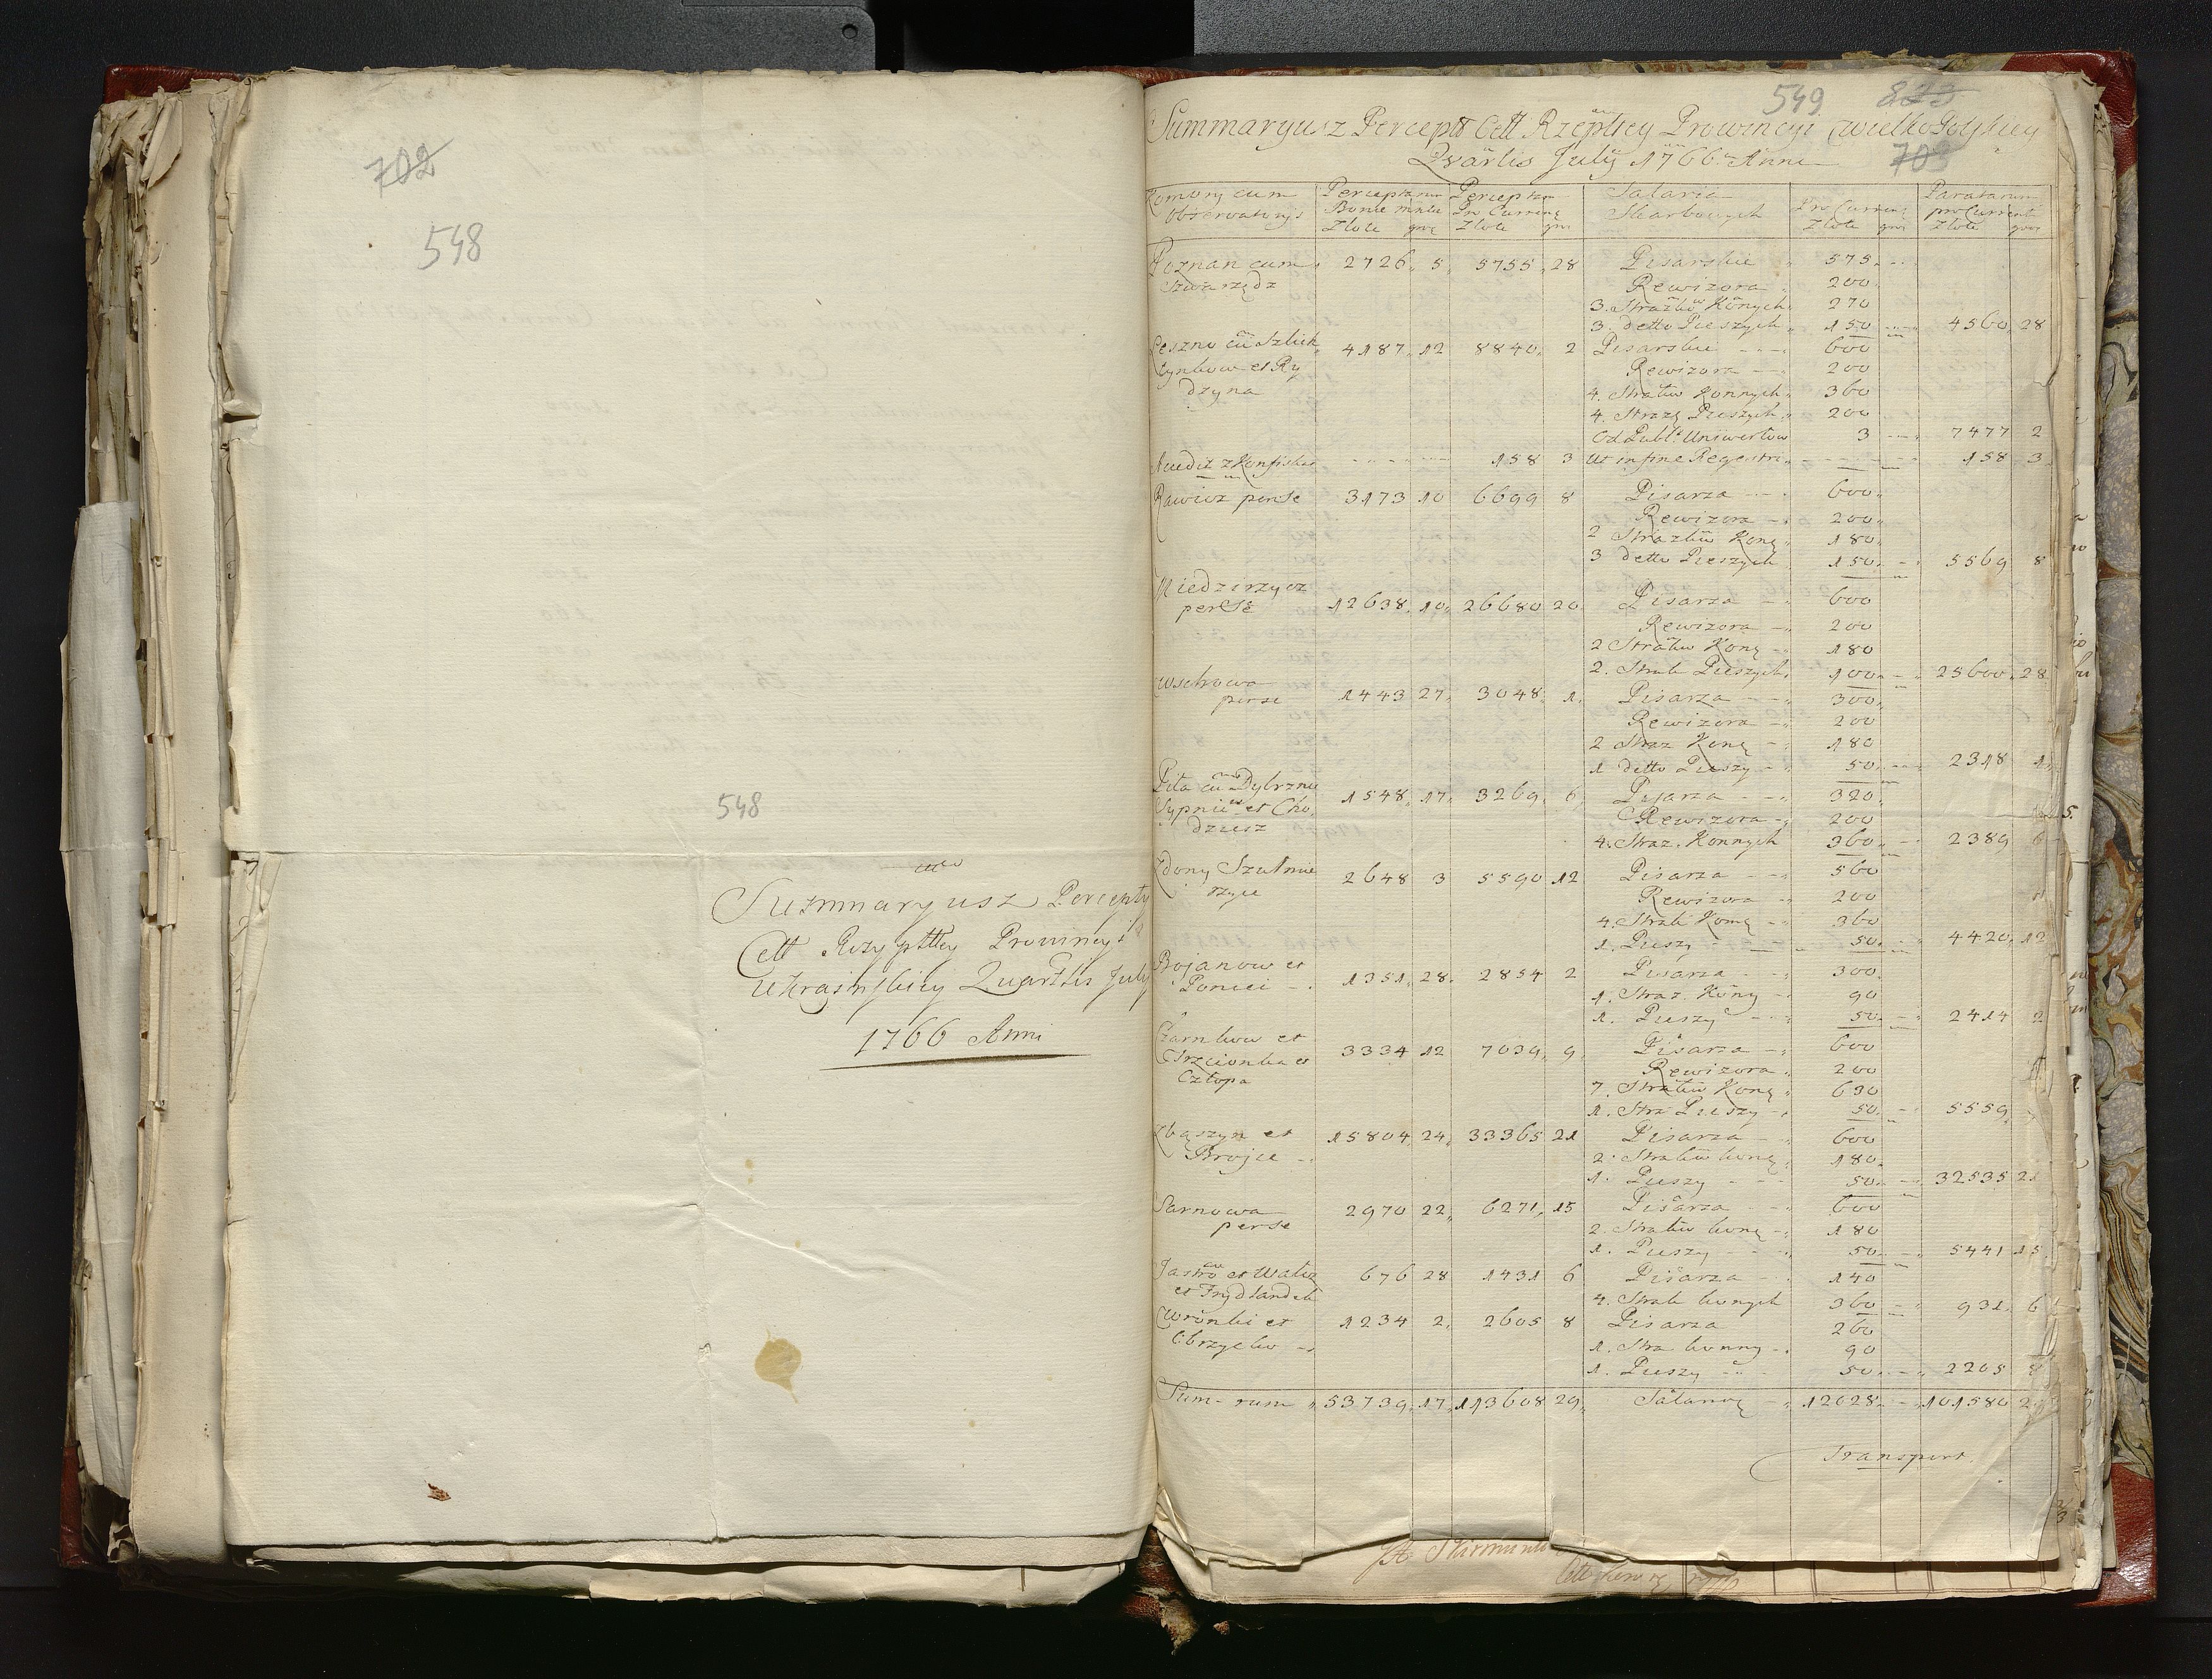 702
548
548
Summaryusz Percepty
Cełł Rzyptttey Prowincyi
Ukrainskiey Quartlis July
1766 Anni
549 823
Summaryusz Percept Cełł Rzepltey Prowincyi Wielko Polskiey
Qvartlis July 1766 Anni 703
Komory cum Observatorys | Perceptarum Bonae Mntae Złote gro | Percepta Pro Curren Złote gro | Salaria Skarbowych | Pro Curren Złote gro | Paratarum pro Currenti Złote gro
Poznan cum 2726 5 5755 28 Pisarskie 575
Szwarzędz Rewizora 200
3. Strażów Konnych 270
3. detto Pieszych 150 4560 28
Leszno cū Szlich 4187 12 8840 2 Pisarskie 600
tynkow et Ry Rewizora 200
dzyna 4. Straków Konnych 360
4. Straży Pieszych 200
Od Publ. Uniwersałow 3 7477 2
z Konfisk 158 3 Ut in fine Regestri 158 3
Rawicz per se 3173 10 6699 8 Pisarza 600
Rewizora 200
2 Strażów Koną 180
3 detto Pieszych 150 5569 8
Miedzirzycz
per se 12638 10 26680 20 Pisarza 600
Rewizora 200
2 Straków Koną 180
2. Strak Pieszych 100 25600 28
Wschowa
per se 1443 27 3048 1 Pisarza 300
Rewizora 200
2 Straż Koną 180
1 detto Pieszy 50 2318 1
Piła cū Dybrzno
Sypniew et Cho 1548 17 3269 6 Pisarza 320
dziesz Rewizora 200
4. Straż. Konnych 360 2389 6
Zdony Szulmie 2648 3 5590 12 Pisarza 560
rzyce Rewizora 200
4. Strak Koną 360
1. Pieszy 50 4420 12
Bojanow et 1351 28 2854 2 Pisarza 300
Poniec 1. Straż. Kony 90
1. Pieszy 50 2414 2
Czarnkow et
Trzcionka et 3334 12 7039 9 Pisarza 600
Człopa Rewizora 200
7. Straków Koną 630
1. Stra Pieszy 50 5559
Zbąszyn et 15804 24 33365 21 Pisarza 600
Brojce 2. Straków koną 180
1. Pieszy 50 32535 21
Sarnowa 2970 22 6271 15 Pisarza 600
per se 2 Straków koną 180
1. Pieszy 50 5441 15
Jastro et Wałcz 676 28 1431 6 Pisarza 140
et Frydlandek 4. Strak konnych 360 931 6
Wronki et 1234 2 2605 8 Pisarza 260
Obrzycko 1. Stra konny 90
1. Pieszy 50 2205 8
Sum-rum 53739 17 113608 29 Salarią 12028 101580
Transport